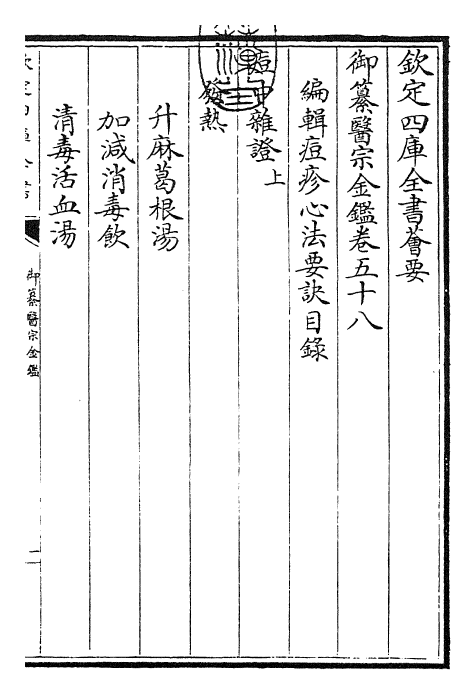 欽定四庫全書薈要
御纂醫宗金鑑卷五十八
編輯痘疹心法要訣目錄
痘中雜證上
發熱
升麻葛根湯
加減消毒飲
清毒活血湯
御纂醫宗金鑑